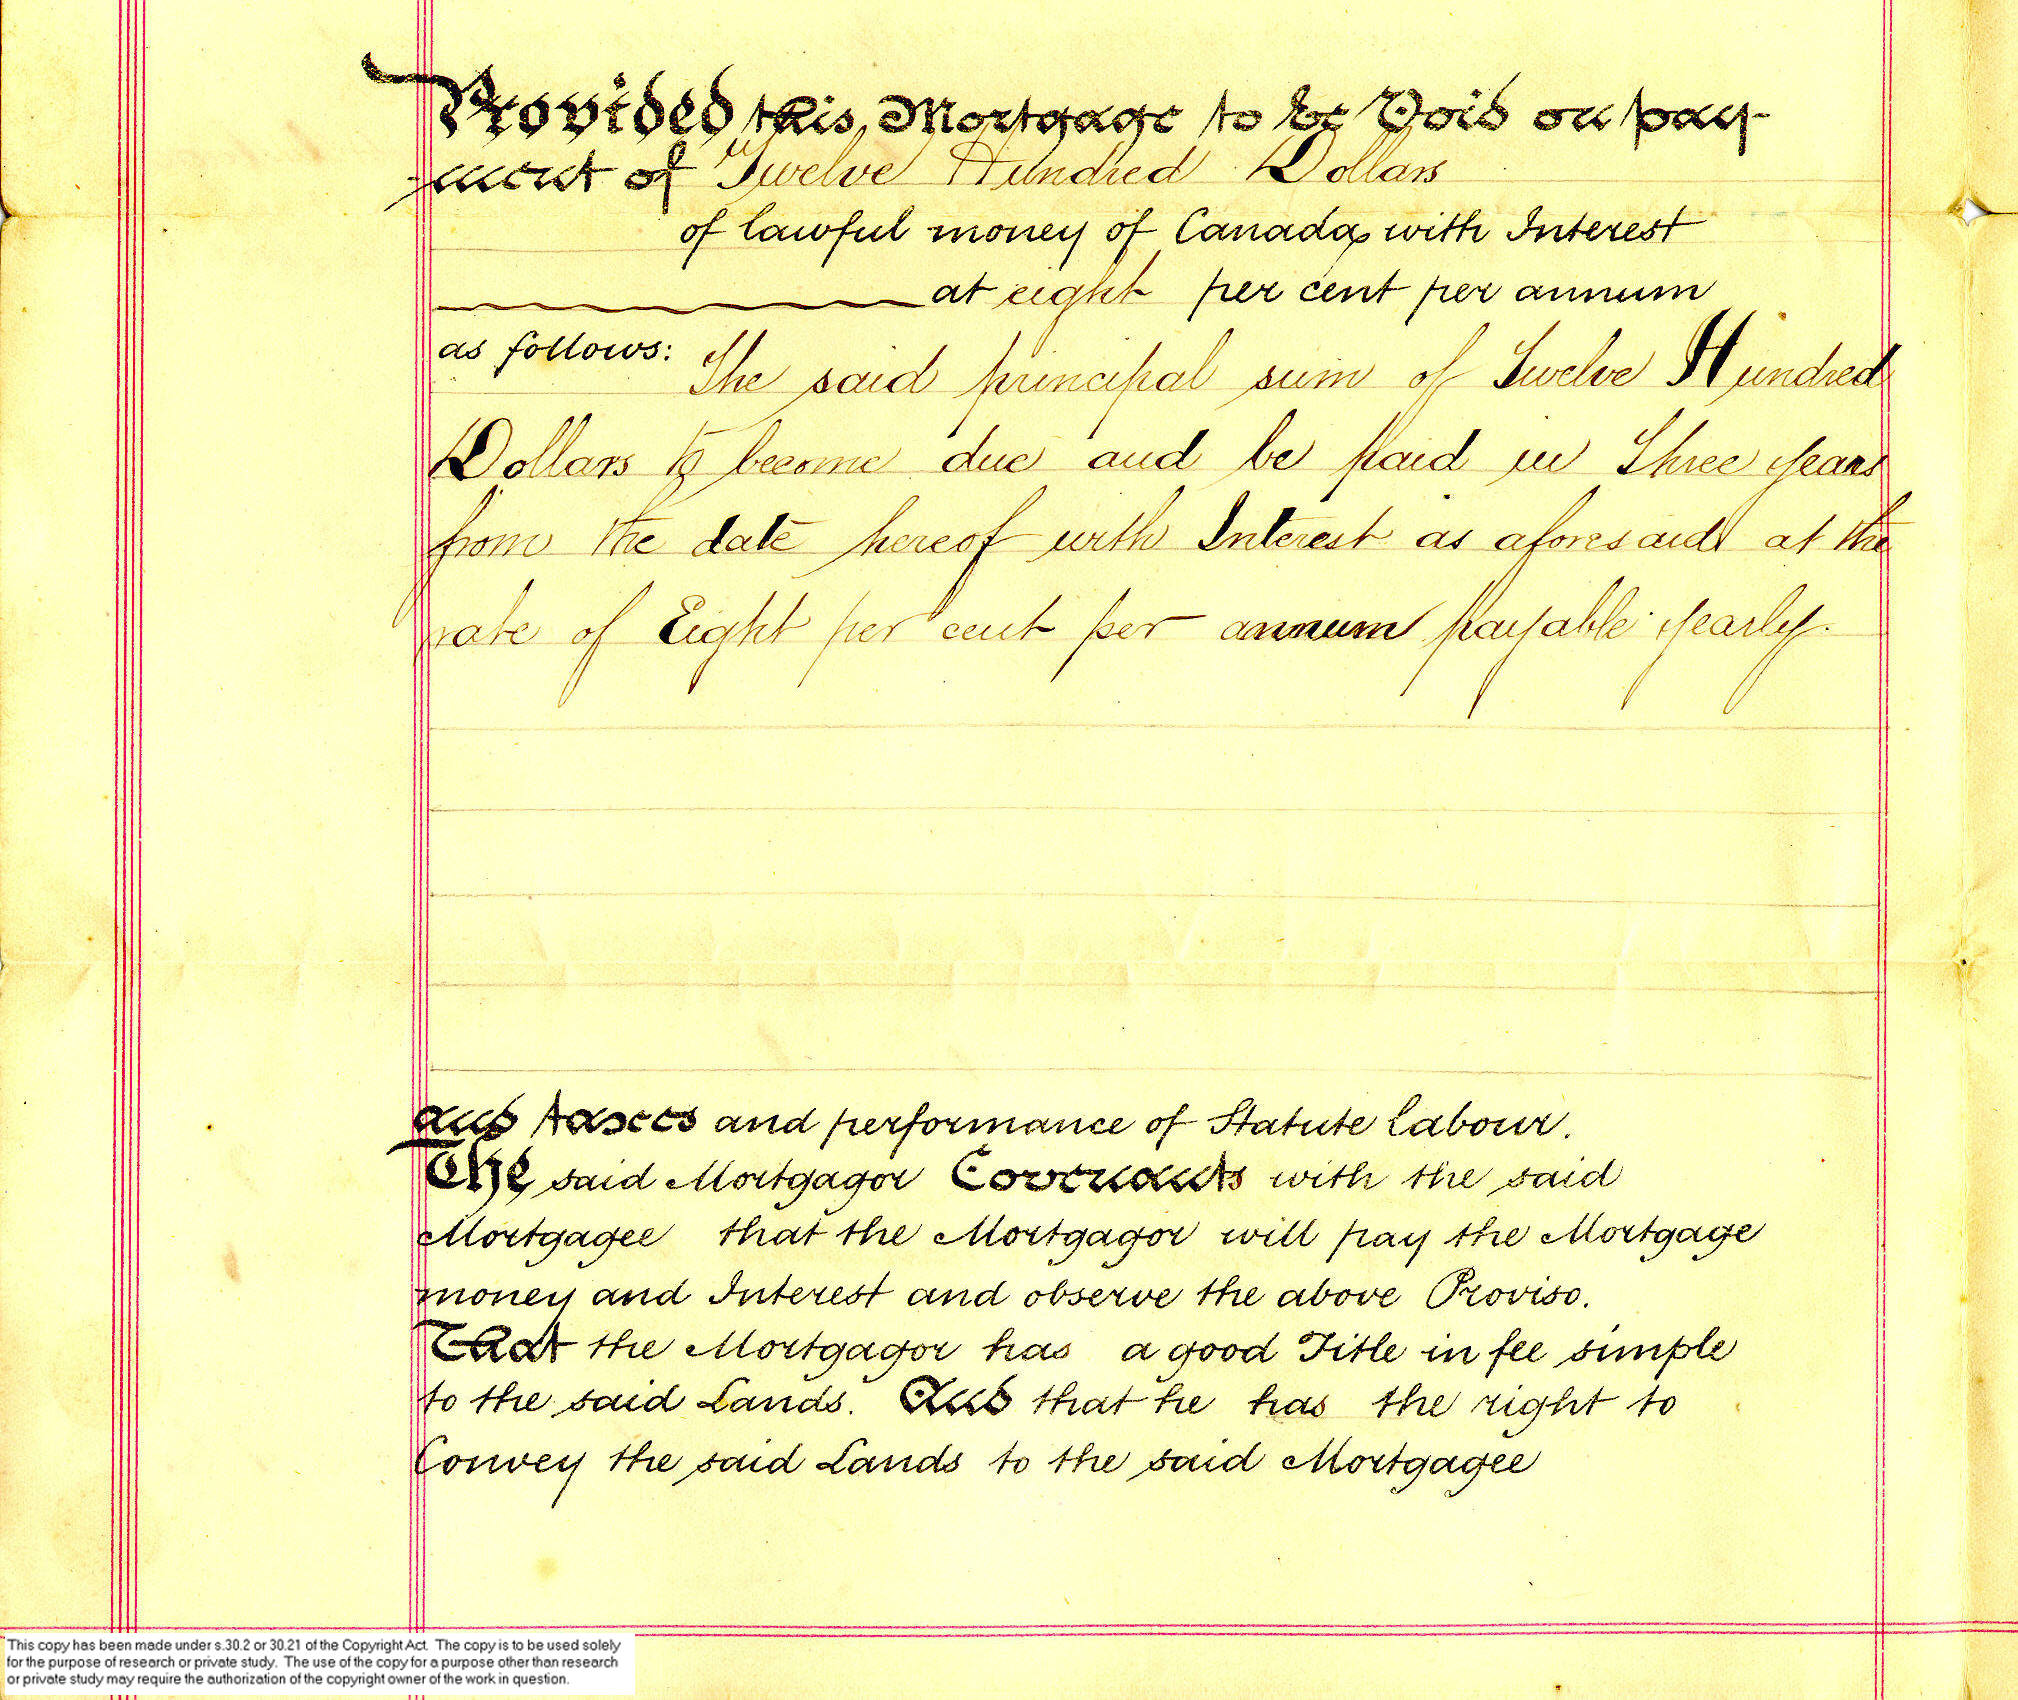 Provided this Mortgage to be Void on pay-
ment of Twelve Hundred Dollars
of lawful money of Canada, with Interest
at eight per cent per annum
as follows: The said principal sum of Twelve Hundred
Dollars to become due and be paid in Three years
from the date hereof with Interest as aforesaid at the
rate of Eight per cent per annum payable yearly.
and taxes and performance of Statute Labour.
The said Mortgagor Covenants with the said
Mortgagee that the Mortgagor will pay the Mortgage
money and Interest and observe the above Proviso.
That the Mortgagor has a good Title in fee simple
to the said Lands. And that he has the right to
Convey the said Lands to the said Mortgagee
This copy has been made under s.30.2 or 30.21 of the Copyright Act. The copy is to be used solely
for the purpose of research or private study. The use of the copy for a purpose other than research
or private study may require the authorization of the copyright owner of the work in question.